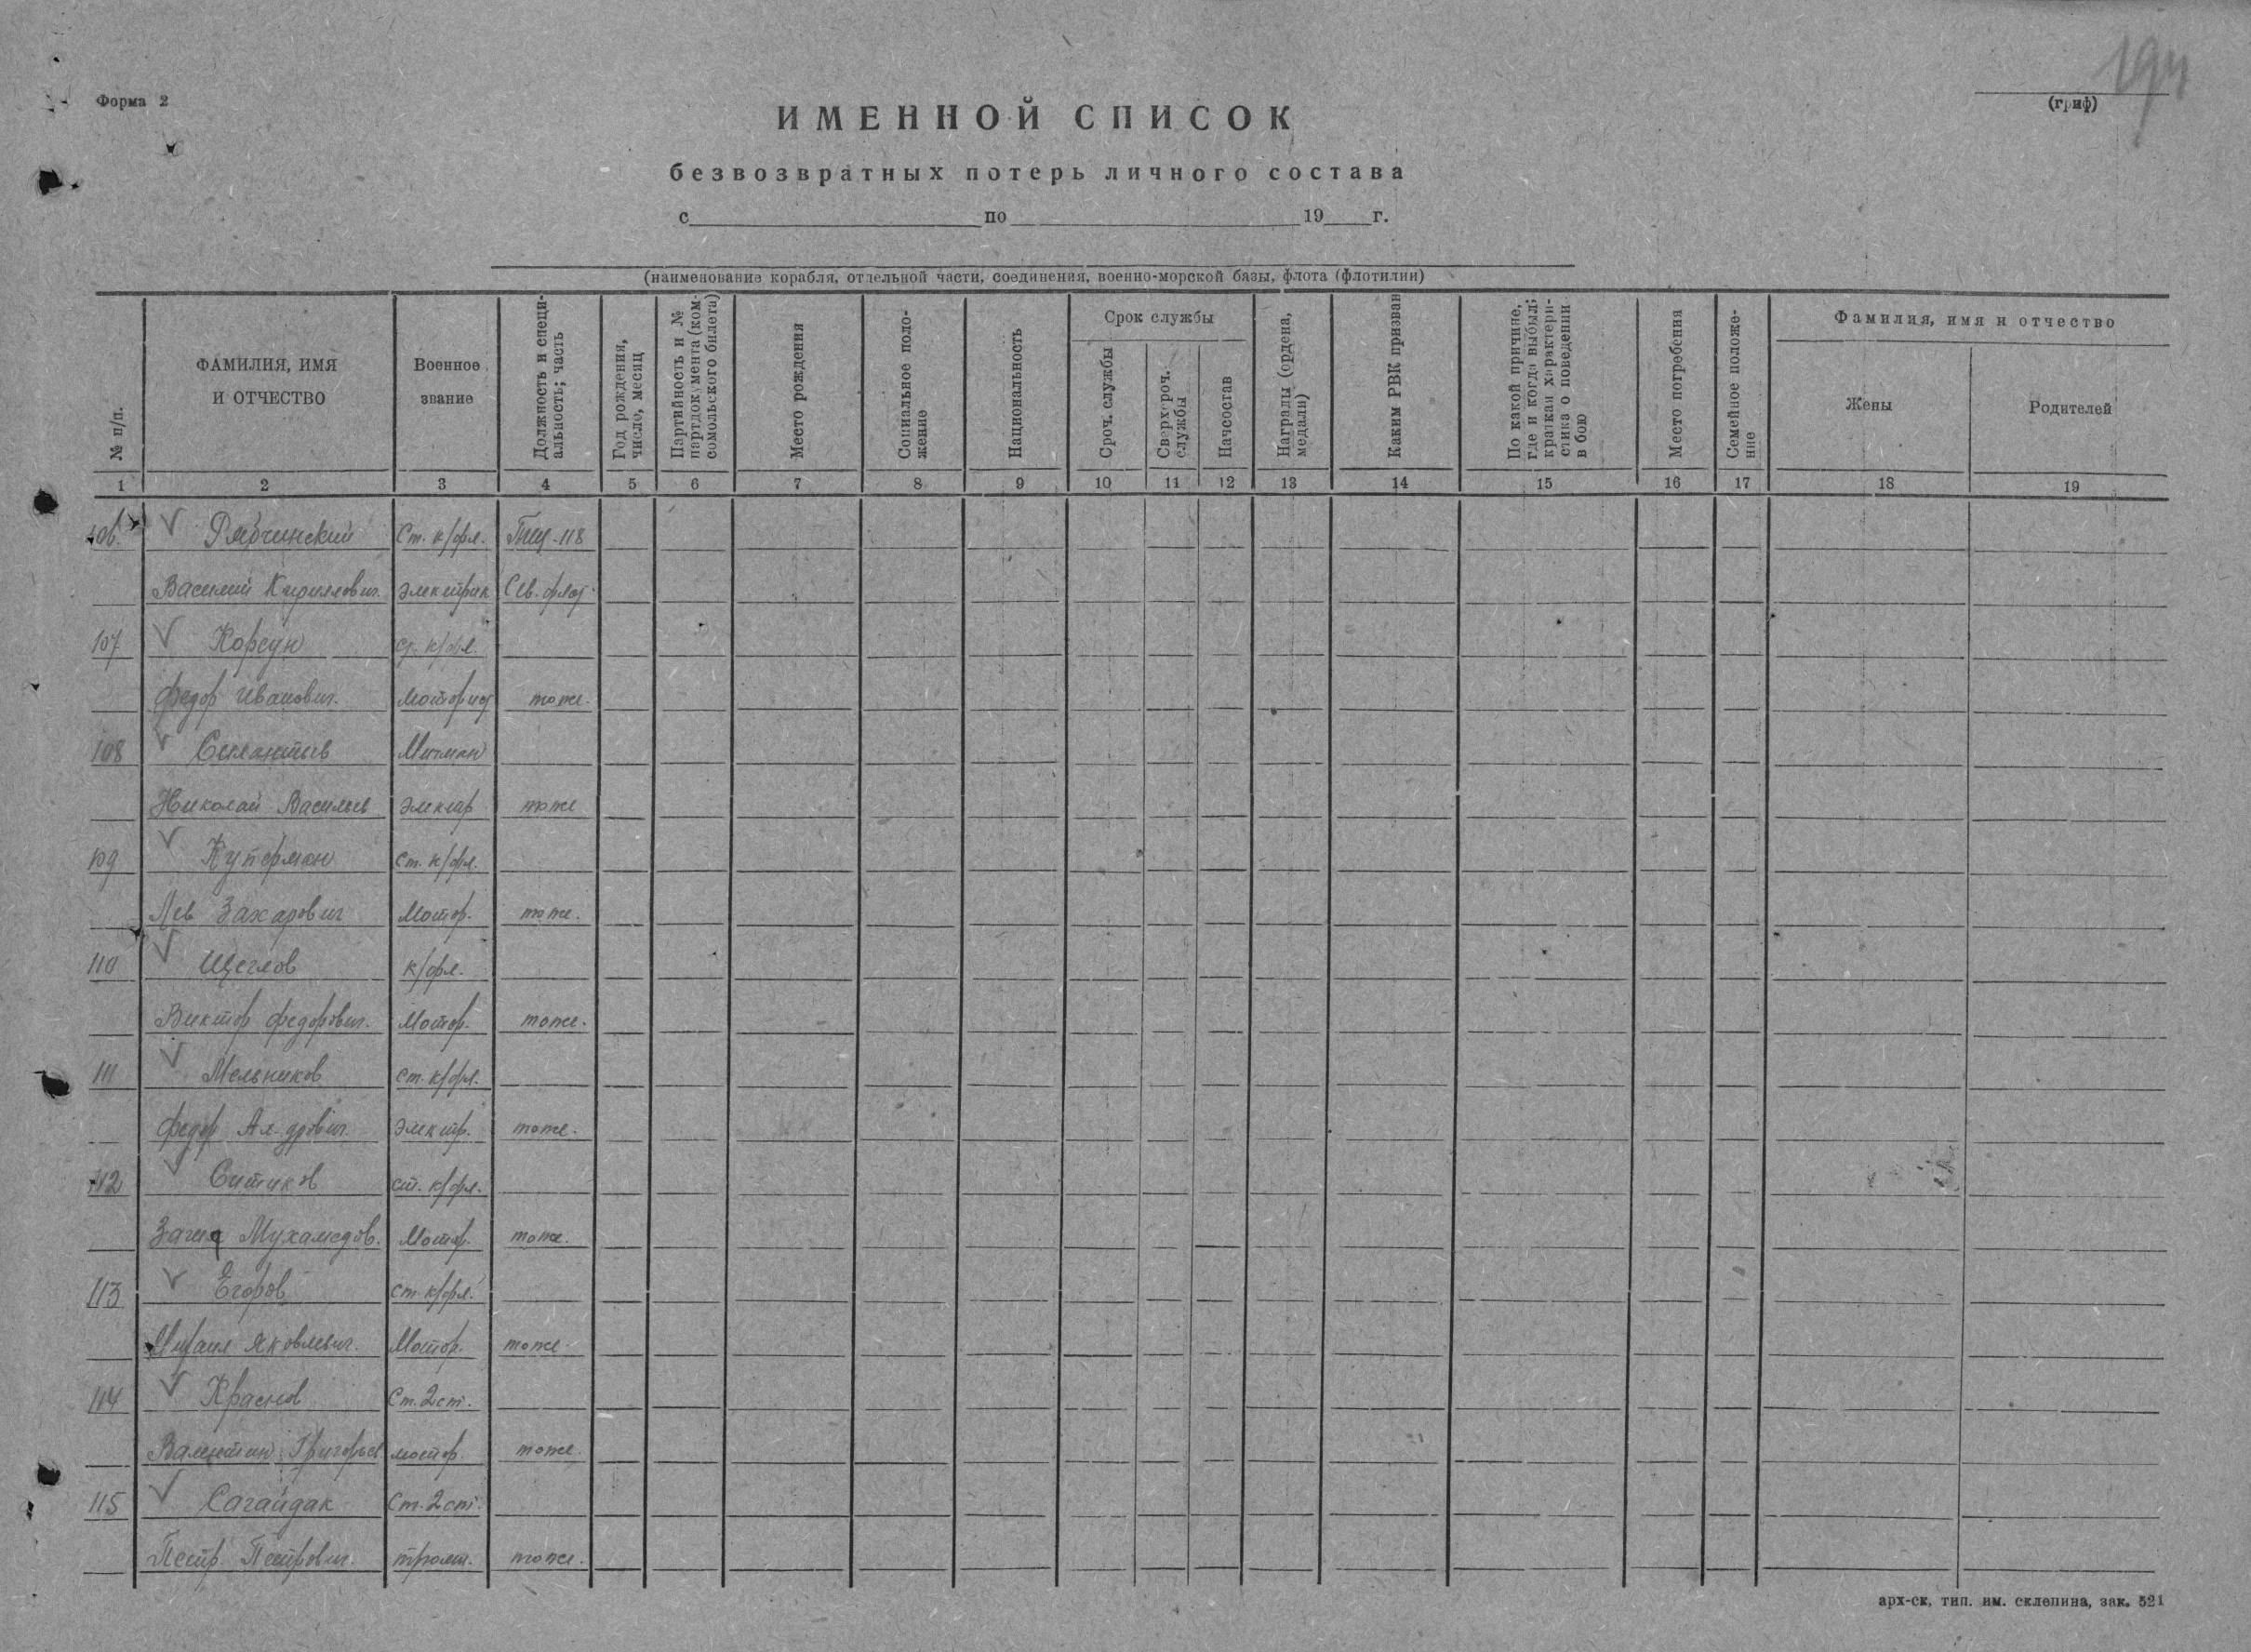 194
Форма 2
(гриф)
ИМЕННОЙ СПИСОК
безвозвратных потерь личного состава
с по 19 г.
(наименование корабля, отдельной части, соединения, военно-морской базы, флота (флотилии)
№ п/п.
ФАМИЛИЯ, ИМЯ И ОТЧЕСТВО
Военное звание
Должность и специальность; часть
Год рождения, число, месяц
Партийность и № партдокумента (комсомольского билета)
Место рождения
Социальное положение
Национальность
Срок службы
Сроч. службы
Сверхсроч. службы
Начсостав
Награды (ордена, медали)
Каким РВК призван
По какой причине, где и когда выбыл; краткая характеристика о поведении в бою
Место погребения
Семейное положение
Фамилия, имя и отчество
Жены
Родителей
1 2 3 4 5 6 7 8 9 10 11 12 13 14 15 16 17 18 19
106. Рябчинский Ст. к/фл. Тщ-118
Василий Кириллович. электрик Сев. флот
107 Корсун ст. к/фл.
Федор Иванович. моторист тоже.
108 Силантьев Мичман
Николай Васильев электр тоже
109 Куперман ст. к/фл.
Лев Захарович Мотор. тоже.
110 Щеглов к/фл.
Виктор Федорович. Мотор. тоже.
111 Мельников ст. к/фл.
Федор Ал-дрович электр. тоже.
112 Ситиков ст. к/фл.
Мухамедов. Мотор. тоже.
113 Егоров ст. к/фл.
Михаил Яковлевич. Мотор. тоже
114 Краснов Ст. 2 ст.
Валентин Григорьев мотор. тоже.
115 Сагайдак Ст. 2 ст.
Петр Петрович. трюмн. тоже.
арх-ск, тип. им. склепина, зак. 521